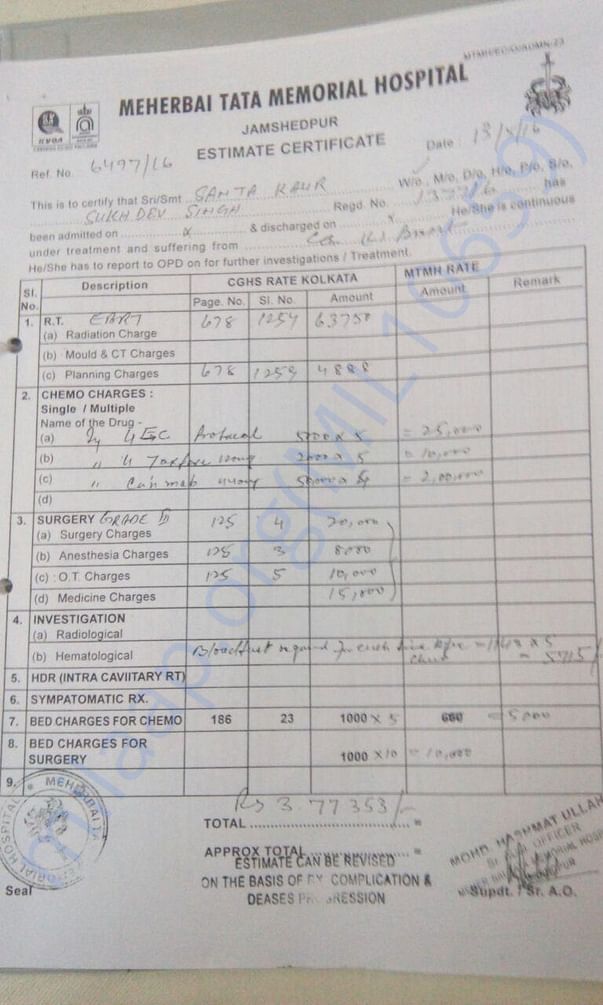 MTMH/EC/O/ADMN-23
MEHERBAI TATA MEMORIAL HOSPITAL
JAMSHEDPUR
ESTIMATE CERTIFICATE
Ref. No. 6497/16 Date : 13/X/16
This is to certify that Sri/Smt SANTA KAUR W/o, M/o, D/o, H/o, P/o, S/o,
SUKHDEV SINGH Regd. No. has
been admitted on x & discharged on x He/She is continuous
under treatment and suffering from Can
He/She has to report to OPD on for further investigations / Treatment.
Sl. No. Description CGHS RATE KOLKATA MTMH RATE Remark
Page. No. Sl. No. Amount Amount
1. R.T. EBRT 678 1254 63750
(a) Radiation Charge
(b) Mould & CT Charges
(c) Planning Charges 678 1259 4888
2. CHEMO CHARGES :
Single / Multiple
Name of the Drug -
(a) 4 EC Protocol 5000 x 5 = 25,000
(b) " 2000 x 5 = 10,000
(c) " 50000 x 4 = 2,00,000
(d)
3. SURGERY GRADE 125 4 20,000
(a) Surgery Charges
(b) Anesthesia Charges 125 3 8000
(c) O.T. Charges 125 5 10,000
(d) Medicine Charges 15,000
4. INVESTIGATION
(a) Radiological
(b) Hematological Blood required for each = 1143 x 5
= 5715/-
5. HDR (INTRA CAVIITARY RT)
6. SYMPATOMATIC RX.
7. BED CHARGES FOR CHEMO 186 23 1000 x 5 600 = 5000
8. BED CHARGES FOR SURGERY 1000 x 10 = 10,000
9.
Rs 3.77353/-
TOTAL =
APPROX TOTAL =
ESTIMATE CAN BE REVISED
ON THE BASIS OF COMPLICATION &
DEASES PROGRESSION
MEHERBAI TATA MEMORIAL HOSPITAL
Seal
MOHD. HASHMAT ULLAH
OFFICER
Supdt. / Sr. A.O.
milaap.org(MIL10659)